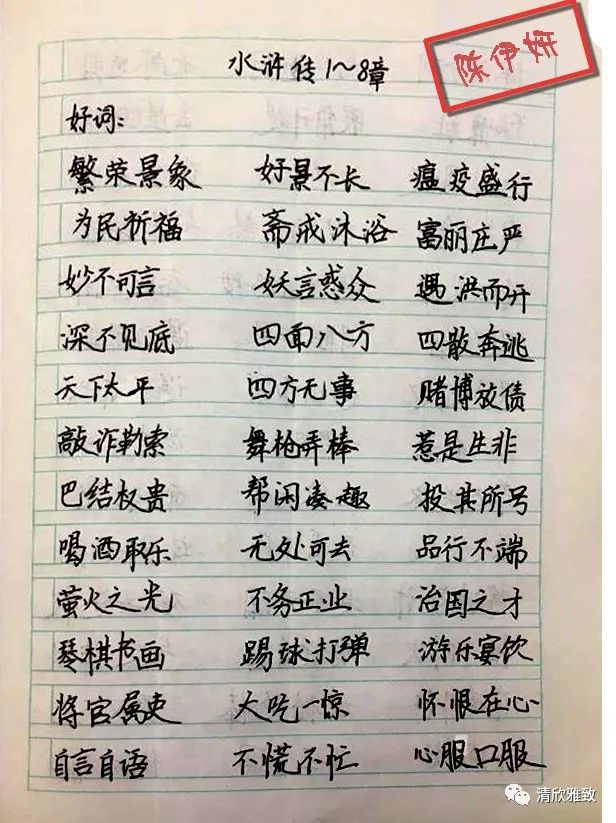 陈伊妍
水浒传1～8章
好词：
繁荣景象 好景不长 瘟疫盛行
为民祈福 斋戒沐浴 富丽庄严
妙不可言 妖言惑众 遇洪而开
深不见底 四面八方 四散奔逃
天下太平 四方无事 赌博放债
敲诈勒索 舞枪弄棒 惹是生非
巴结权贵 帮闲凑趣 投其所号
喝酒取乐 无处可去 品行不端
萤火之光 不务正业 治国之才
琴棋书画 踢球打弹 游乐宴饮
将官属吏 大吃一惊 怀恨在心
自言自语 不慌不忙 心服口服
清欣雅致